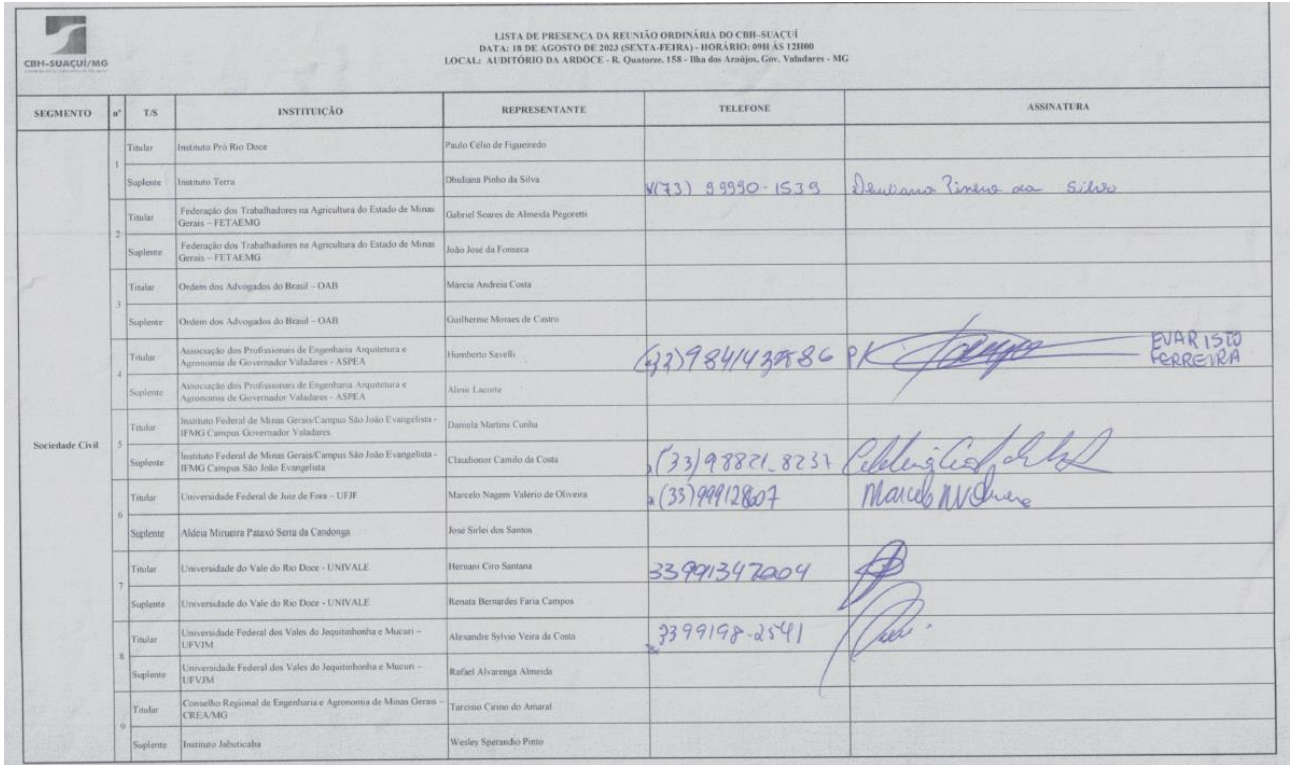 CBH-SUAÇUÍ/MG
LISTA DE PRESENÇA DA REUNIÃO ORDINÁRIA DO CBH-SUAÇUÍ
DATA: 18 DE AGOSTO DE 2023 (SEXTA-FEIRA) - HORÁRIO: 09H ÀS 12H00
LOCAL: AUDITÓRIO DA ARDOCE - R. Quatorze, 158 - Ilha dos Araújos, Gov. Valadares - MG
SEGMENTO nº T/S INSTITUIÇÃO REPRESENTANTE TELEFONE ASSINATURA
Sociedade Civil
1
Titular Instituto Pró Rio Doce Paulo Célio de Figueiredo
Suplente Instituto Terra Dhuliana Pinho da Silva (73) 99990-1539 da Silva
2
Titular Federação dos Trabalhadores na Agricultura do Estado de Minas
Gerais – FETAEMG Gabriel Soares de Almeida Pegoretti
Suplente Federação dos Trabalhadores na Agricultura do Estado de Minas
Gerais – FETAEMG João José da Fonseca
3
Titular Ordem dos Advogados do Brasil – OAB Márcia Andreia Costa
Suplente Ordem dos Advogados do Brasil – OAB Guilherme Moraes de Castro
4
Titular Associação dos Profissionais de Engenharia Arquitetura e
Agronomia de Governador Valadares - ASPEA Humberto Savelli EVARISTO
FERREIRA
Suplente Associação dos Profissionais de Engenharia Arquitetura e
Agronomia de Governador Valadares - ASPEA
5
Titular Instituto Federal de Minas Gerais/Campus São João Evangelista -
IFMG Campus Governador Valadares Daniela Martins Cunha
Suplente Instituto Federal de Minas Gerais/Campus São João Evangelista -
IFMG Campus São João Evangelista Claudionor Camilo da Costa (33) 98821-8237
6
Titular Universidade Federal de Juiz de Fora – UFJF Marcelo Nagem Valério de Oliveira (33) 999128607 Marcelo
Suplente Aldeia Mirueira Pataxó Serra da Candonga José Sirlei dos Santos
7
Titular Universidade do Vale do Rio Doce - UNIVALE Hernani Ciro Santana 33991347004
Suplente Universidade do Vale do Rio Doce - UNIVALE Renata Bernardes Faria Campos
8
Titular Universidade Federal dos Vales do Jequitinhonha e Mucuri –
UFVJM Alexandre Sylvio Veira da Costa 3399198-2541
Suplente Universidade Federal dos Vales do Jequitinhonha e Mucuri –
UFVJM Rafael Alvarenga Almeida
9
Titular Conselho Regional de Engenharia e Agronomia de Minas Gerais –
CREA/MG Tarcisio Cirino do Amaral
Suplente Instituto Jabuticaba Wesley Sperandio Pinto